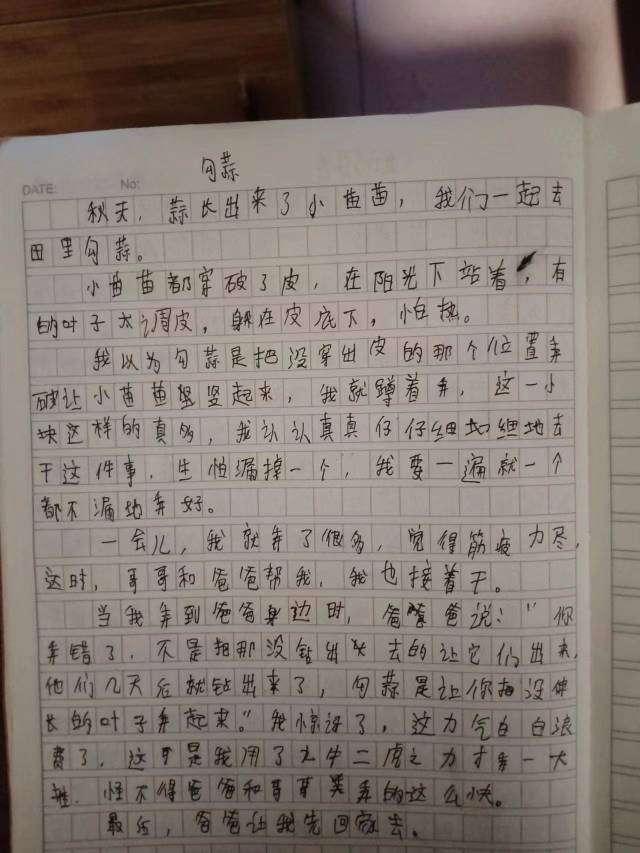 勾蒜
DATE: No:
秋天，蒜长出来了小苗苗，我们一起去
田里勾蒜。
小苗苗都穿破了皮，在阳光下站着，有
的叶子太调皮，躲在皮底下，怕热。
我以为勾蒜是把没穿出皮的那个位置弄
破让小苗苗竖竖起来，我就蹲着弄，这一小
块这样的真多，我认认真真仔仔细细地去
干这件事，生怕漏掉一个，我要一遍就一个
都不漏地弄好。
一会儿，我就弄了很多，觉得筋疲力尽，
这时，哥哥和爸爸帮我，我也接着干。
当我弄到爸爸身边时，爸爸说："你
弄错了，不是把那没钻出去的让它们出来，
他们几天后就钻出来了，勾蒜是让你把没伸
长的叶子弄起来。"我惊讶了，这力气白白浪
费了，这可是我用了九牛二虎之力才弄一大
难，怪不得爸爸和哥哥弄的这么快。
最后，爸爸让我先回家去。